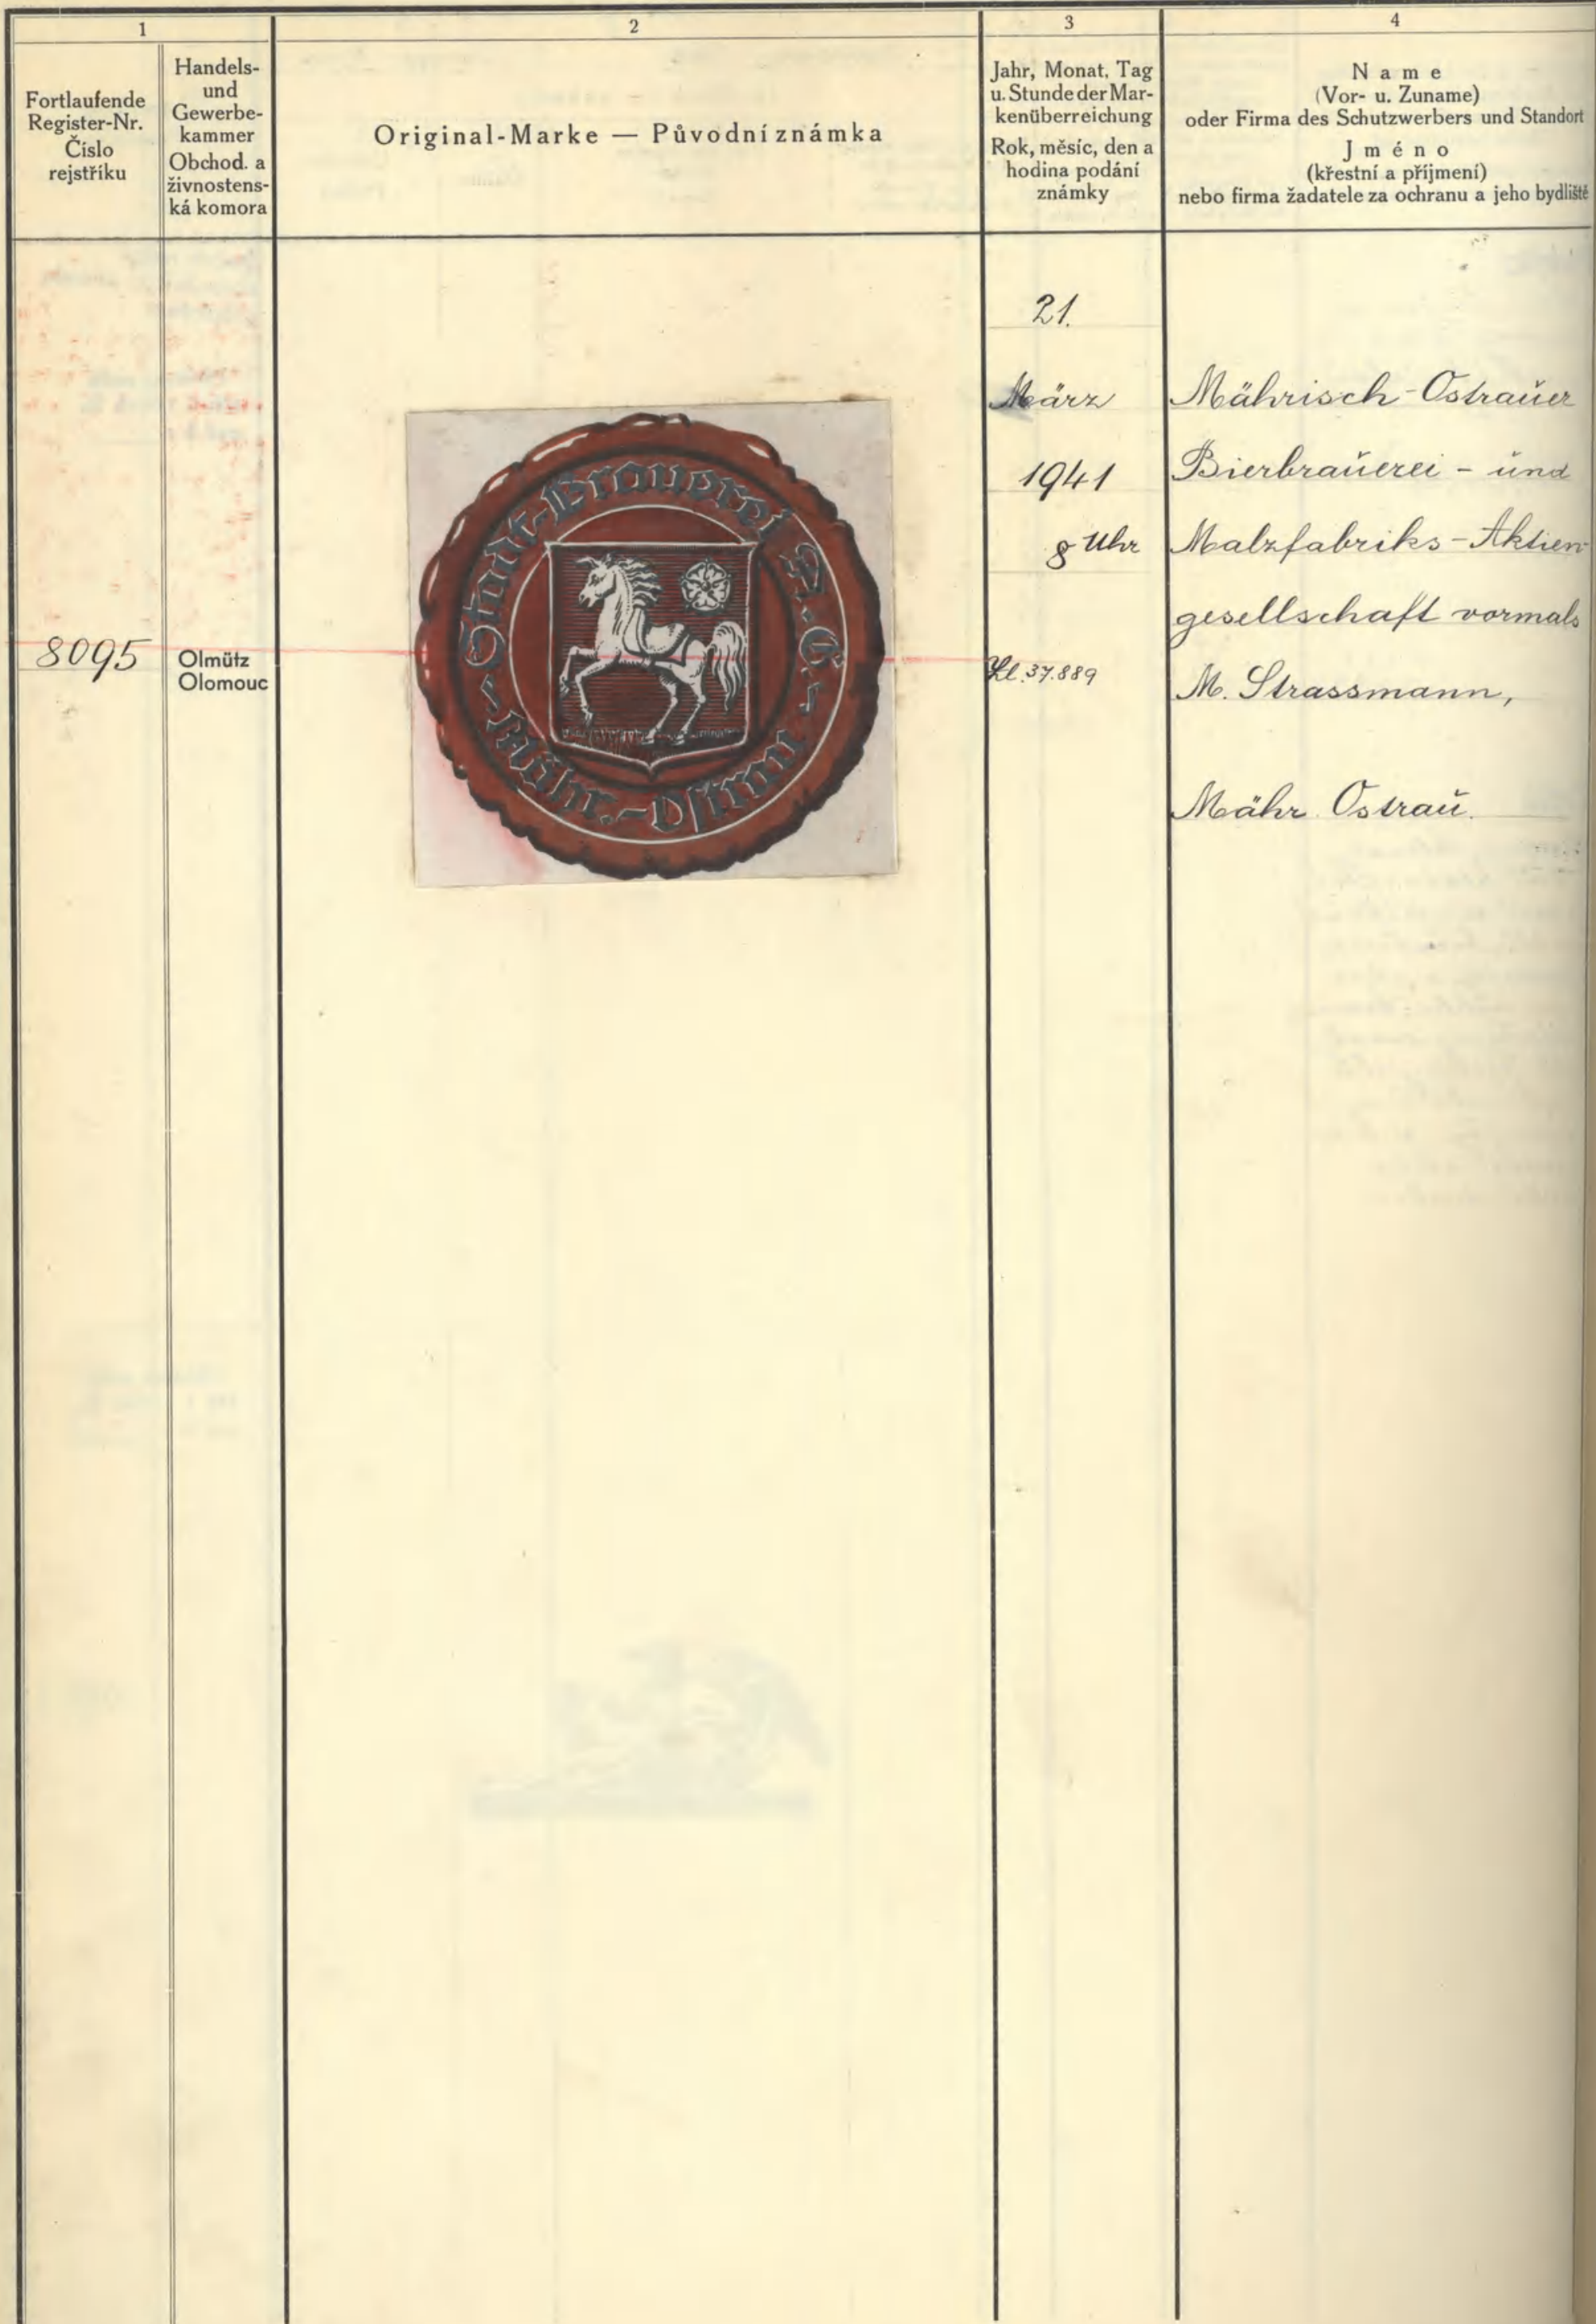 1
2
3
4
Fortlaufende
Register-Nr.
Číslo
rejstříku
Handels-
und
Gewerbe-
kammer
Obchod. a
živnostens-
ká komora
Original-Marke — Původní známka
Jahr, Monat, Tag
u. Stunde der Mar-
kenüberreichung
Rok, měsíc, den a
hodina podání
známky
Name
(Vor- u. Zuname)
oder Firma des Schutzwerbers und Standort
Jméno
(křestní a příjmení)
nebo firma žadatele za ochranu a jeho bydliště
8095
Olmütz
Olomouc
Stadt-Brauerei A.G.
Mähr.-Ostrau
21.
März
1941
8 Uhr
37.889
Mährisch-Ostrauer
Bierbrauerei - und
Malzfabriks-Aktien-
gesellschaft vormals
M. Strassmann,
Mähr. Ostrau.